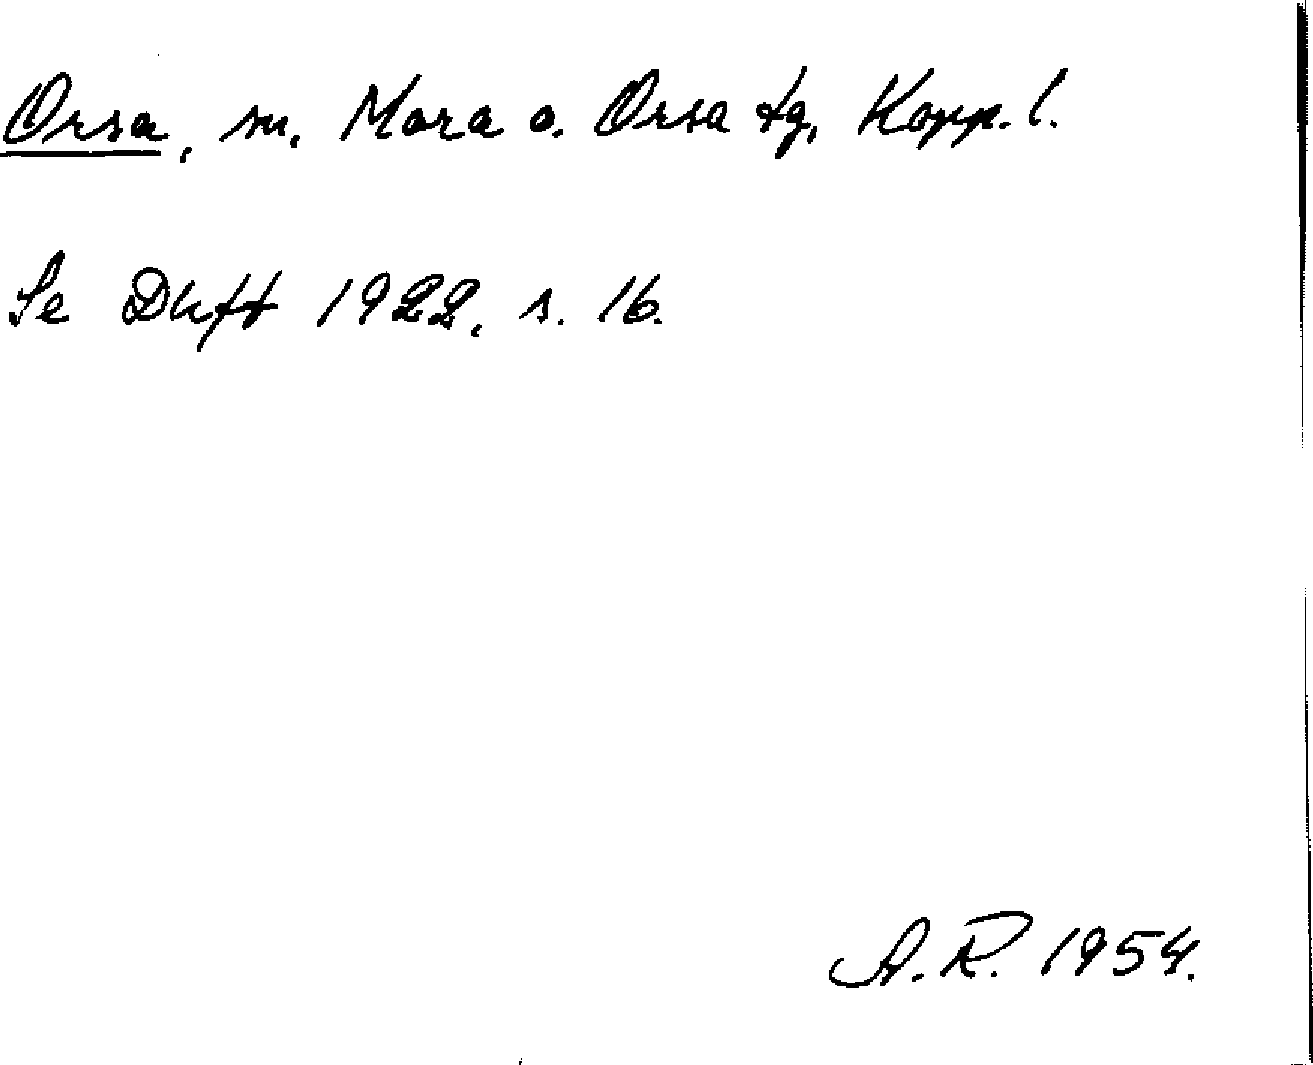 Orsa, sn. Mora o. Orsa tg, Kopp. l.
Se Dhft 1922, s. 16.
A. R. 1954.